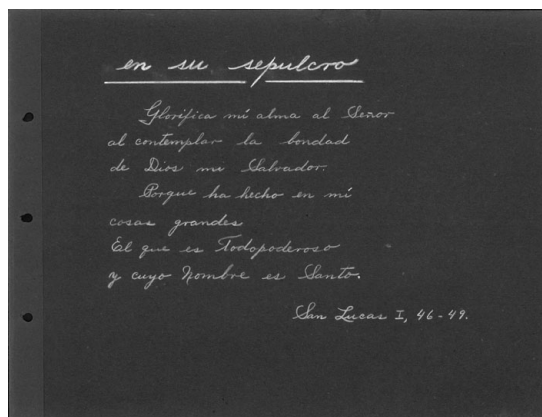 en su sepulcro
Glorifica mi alma al Señor
al contemplar la bondad
de Dios mi Salvador.
Porque ha hecho en mi
cosas grandes
El que es Todopoderoso
y cuyo Nombre es Santo.
San Lucas I, 46-49.